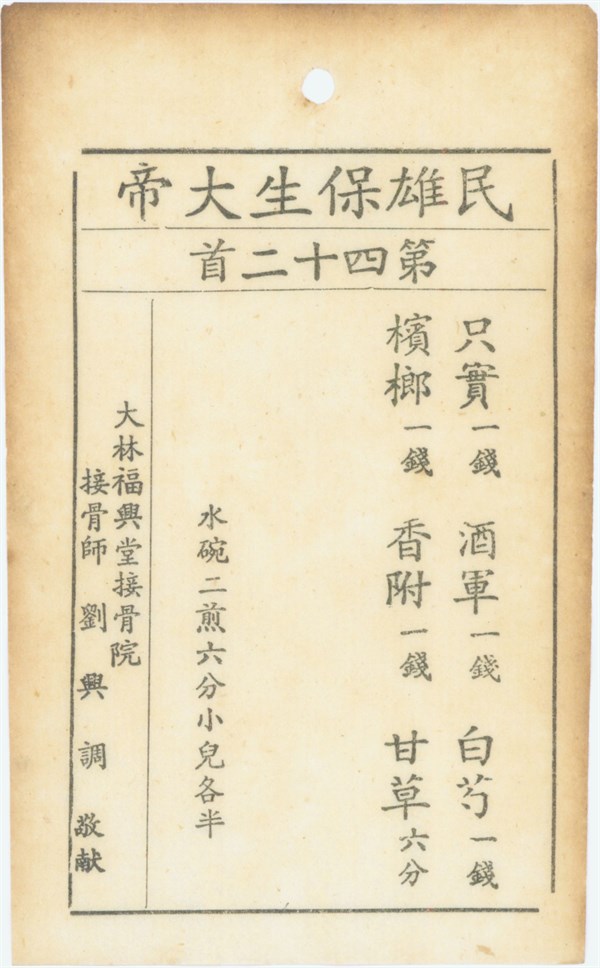 民雄保生大帝
第四十二首
只實一錢　酒軍一錢　白芍一錢
檳榔一錢　香附一錢　甘草六分
水碗二煎六分小兒各半
大林福興堂接骨院
接骨師　劉興調　敬献